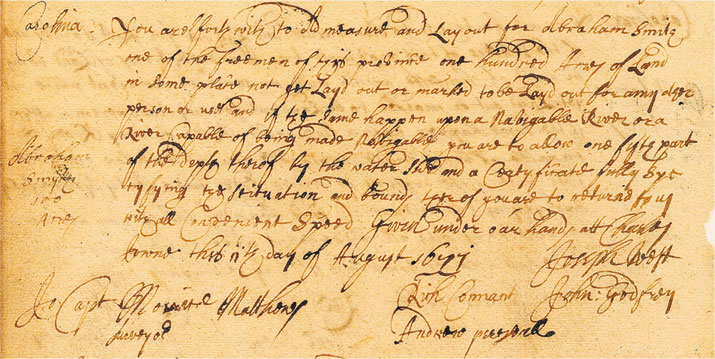 Carolina.
You are forthwith to Admeasure and Layout for Abraham Smith
one of the freemen of this province one hundred Acres of Land
in some place not yet Layd out or marked to be Layd out for any other
person or uses and if the same happen upon a Navigable River or a
River capable of being made Navigable you are to allow one fifth part
of the depth thereof by the water side and a Certyficate fully Spe
cyfying the Scituation and bounds thereof you are to returne to us
with all Convenient Speed Given under our hands att Charles
Towne this 11th day of August 1677
Abraham
Smyth
100
Acres
Joseph West
To Capt Mourice Mathews
Surveyor
Rich Connant
John: Godfrey
Andrew percivall